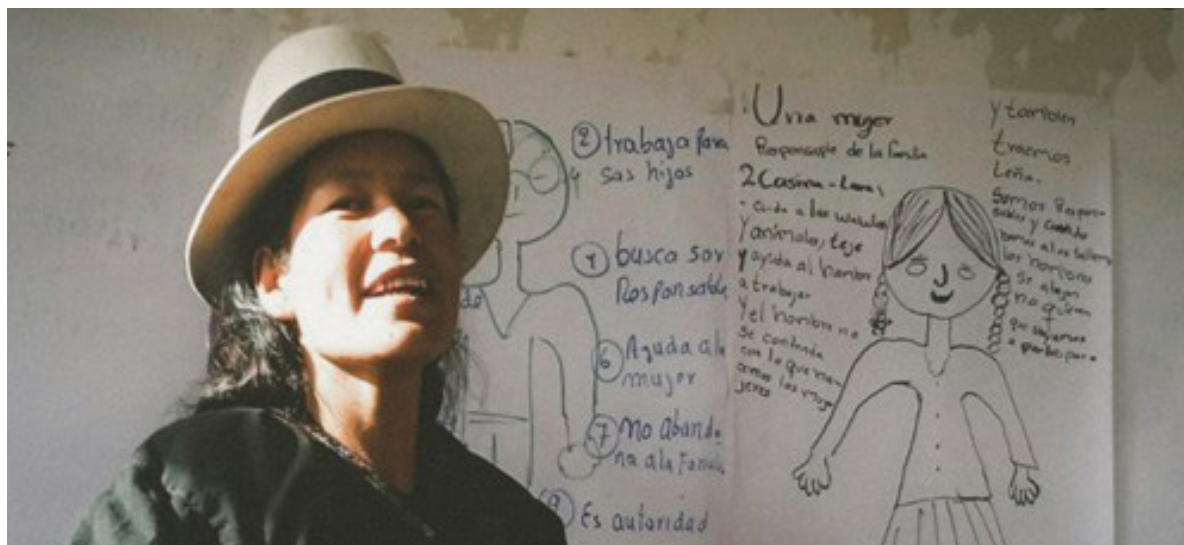 2 trabaja para
sas hijos
4 busca ser
Responsable
6 Ayuda a la
mujer
7 No abando
na a la Famili
Es autoridad
Una mujer
Responsable de la familia
2 Casina - lava,
- Cuida a las wawitas
y animales, teje
y ayuda al hombre
a trabajar
y el hombre no
se contenta
con lo que
las muje
jeres
y tambien
traemos
Leña.
Somos Respon-
sables y cuando
vamos a los talleres
los hombres
se alejan
no quieren
que vayamos
a participar